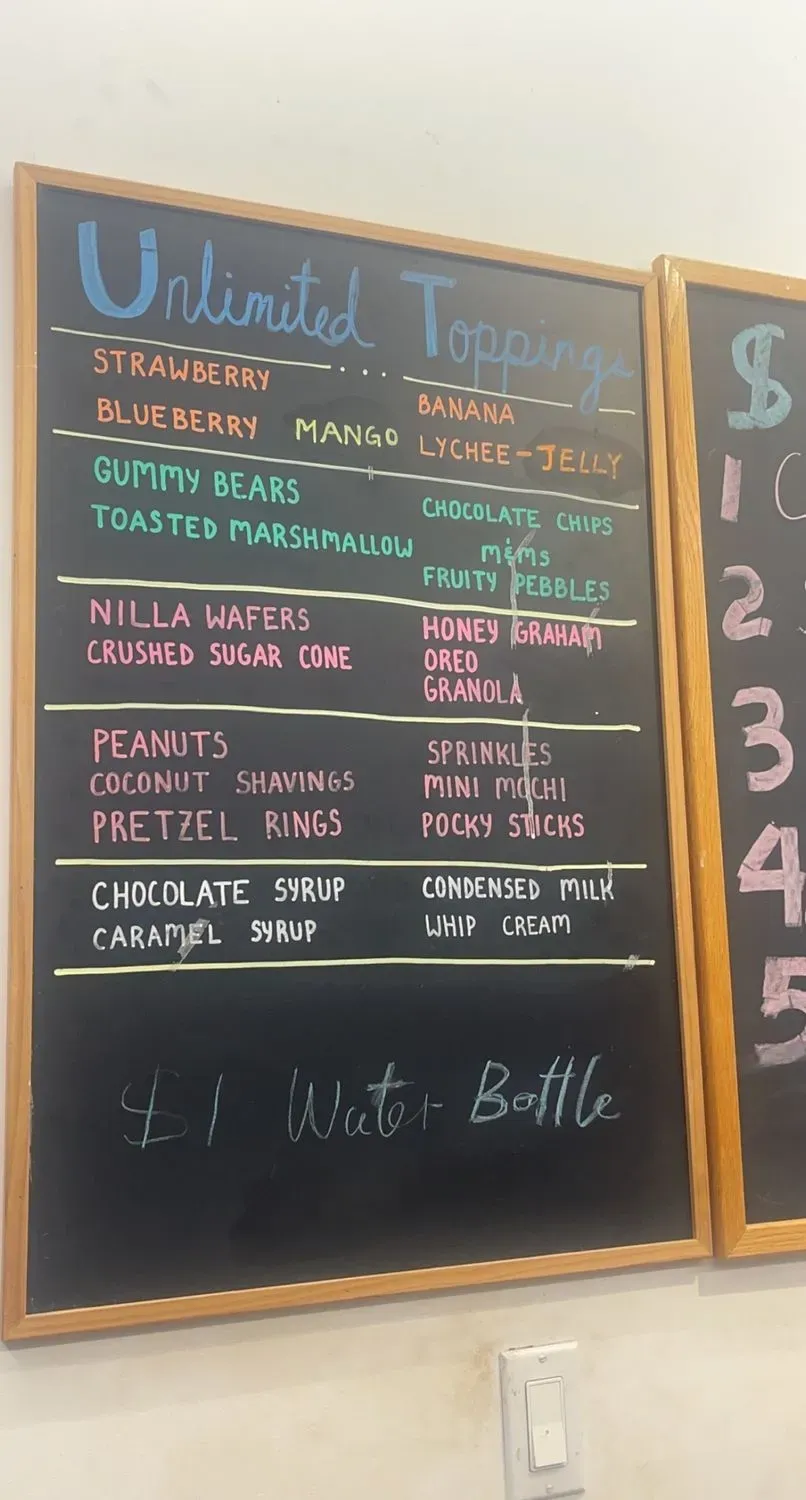 Unlimited Toppings
STRAWBERRY
BLUEBERRY MANGO
BANANA
LYCHEE-JELLY
GUMMY BEARS
TOASTED MARSHMALLOW
CHOCOLATE CHIPS
M&MS
FRUITY PEBBLES
NILLA WAFERS
CRUSHED SUGAR CONE
HONEY GRAHAM
OREO
GRANOLA
PEANUTS
COCONUT SHAVINGS
PRETZEL RINGS
SPRINKLES
MINI MOCHI
POCKY STICKS
CHOCOLATE SYRUP
CARAMEL SYRUP
CONDENSED MILK
WHIP CREAM
$1 Water Bottle
$
1
2
3
4
5